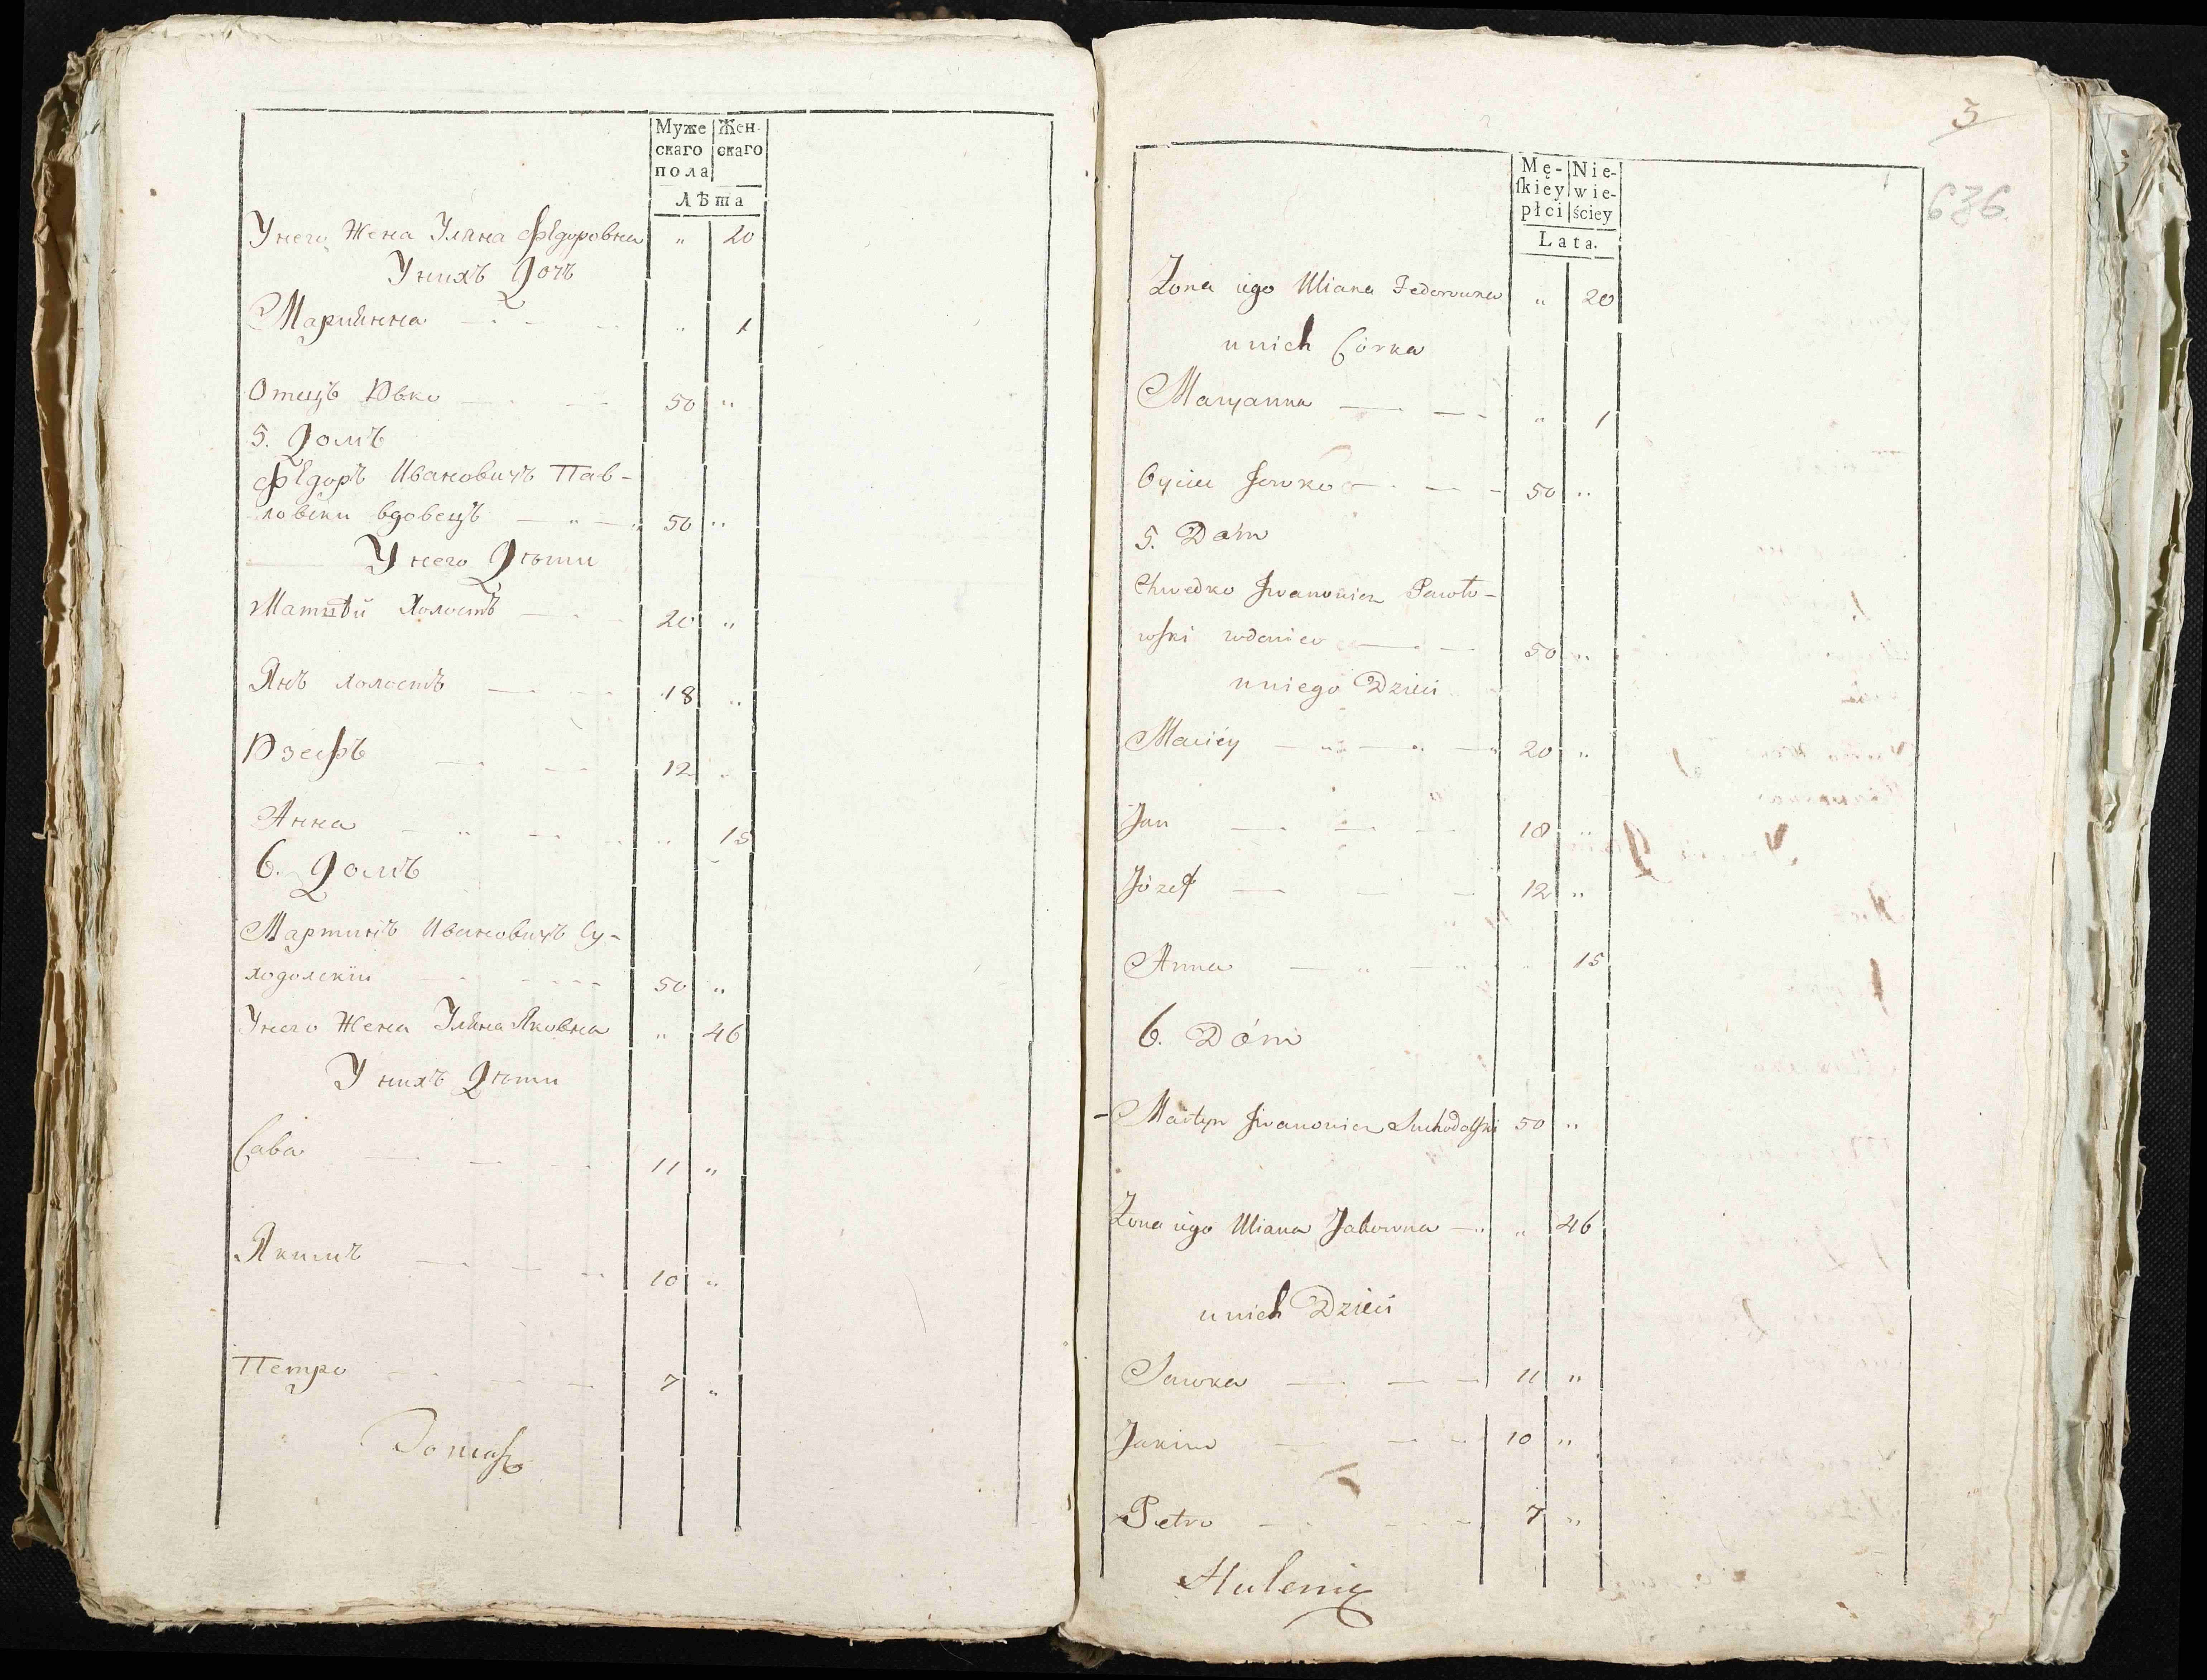 Муже
скаго
пола
Жен-
скаго
Лѣта
У него Жена Уляна Федоровна " 20
У нихъ Дочь
Марианна " 1
Отецъ Ювко 50 "
5. Домъ
Федоръ Ивановичъ Пав-
ловски вдовецъ 50 "
У него Дѣти
Матвѣй Холостъ 20 "
Янъ холостъ 18 "
Юзефъ 12 "
Анна " 15
6. Домъ
Мартинъ Ивановичъ Су-
ходолскїи 50 "
У него Жена Уляна Яковна " 46
У нихъ Дѣти
Сава 11 "
Якимъ 10 "
Петро 7 "
3
636.
Mę-
skiey
płci
Nie-
wie-
ściey
Lata.
Żona iego Uliana Fedorowna " 20
u nich Córka
Maryanna " 1
Oyciec Jowko 50 "
5. Dóm
Chwedko Iwanowicz Pawło-
wski wdowiec 50 "
u niego Dzieci
Maciéy 20 "
Jan 18 "
Józef 12 "
Anna " 15
6. Dóm
Martyn Iwanowicz Suchodolski 50 "
Żona iego Uliana Jakowna " 46
u nich Dzieci
Sawka 11 "
Jakim 10 "
Petro 7 "